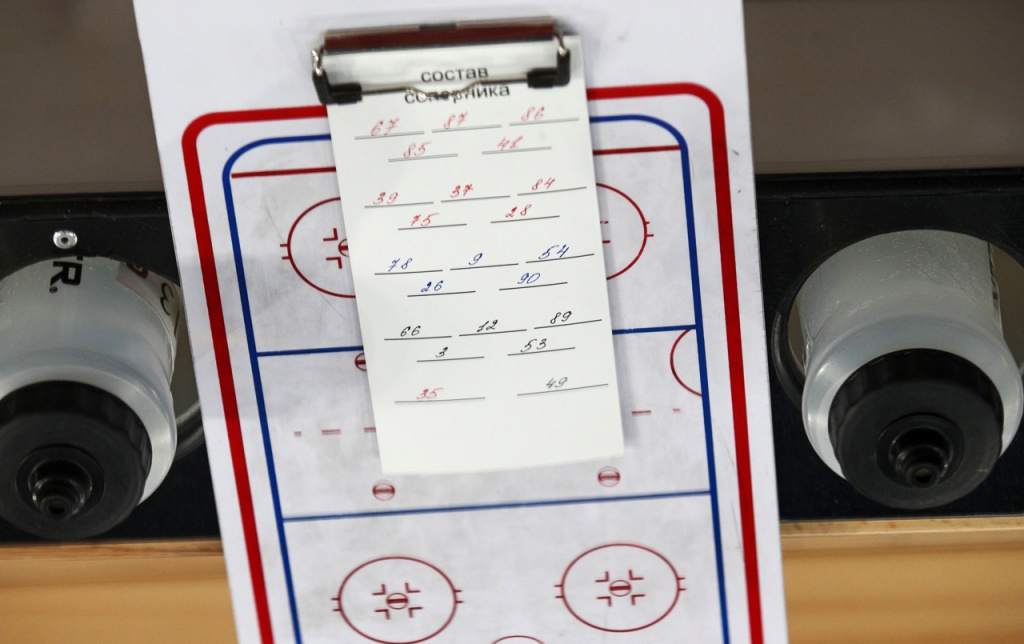 состав
соперника
67 87 86
85 48
39 37 84
75 28
78 9 54
26 90
66 12 89
3 53
35 49
TR.